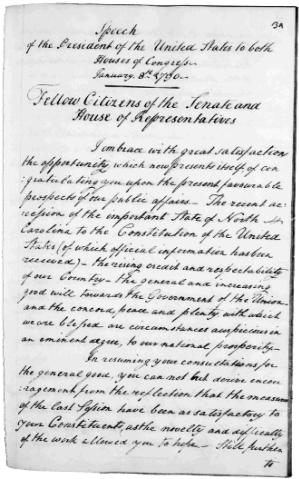 3A
Speech
of the President of the United States to both
Houses of Congress
January. 8th 1790.
Fellow Citizens of the Senate and
House of Representatives
I embrace with great satisfaction
the opportunity, which now presents itself, of con
gratulating you upon the present favourable
prospects of our public affairs — The recent ac
cession of the important State of North
Carolina to the Constitution of the United
States (of which official information has been
received) — the rising credit and respectability
of our Country — the general and increasing
good will towards the Government of the Union
and the concord, peace and plenty, with which
we are blessed are circumstances auspicious in
an eminent degree, to our national prosperity —
In resuming your consultations for
the general good, you can not but derive encou
ragement from the reflection that the measures
of the last Session have been as satisfactory to
your Constituents, as the novelty and difficulty
of the work allowed you to hope — Still further
to